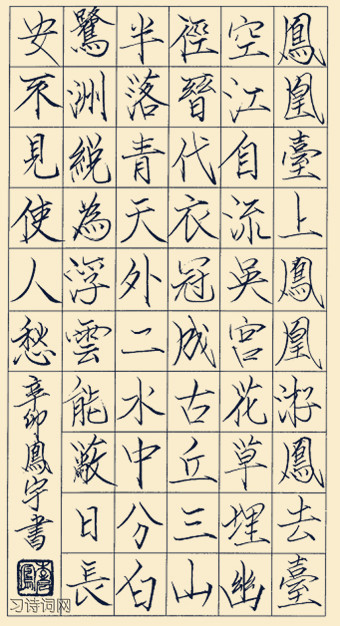 鳳凰臺上鳳凰游鳳去臺
空江自流吳宮花草埋幽
徑晉代衣冠成古丘三山
半落青天外二水中分白
鷺洲總為浮雲能蔽日長
安不見使人愁
辛卯鳳宇書
习诗词网